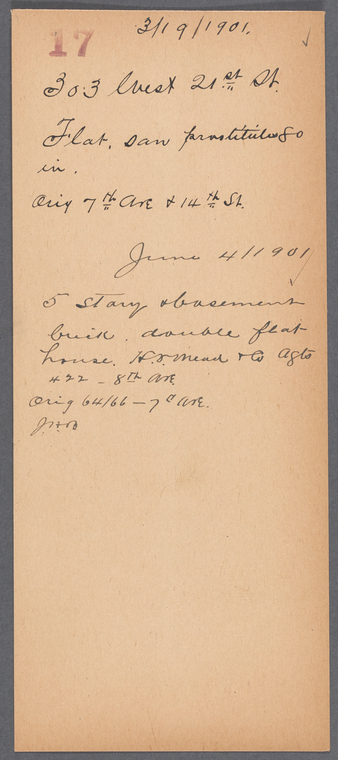 17
3/19/1901.
303 West 21st St.
Flat. saw prostitutes go
in.
Orig 7th Ave & 14th St.
June 4/1901
5 story & basement
brick. double flat
house. H. F. Mead & Co Agts
422 - 8th Ave
Orig 64/66 - 7th Ave.